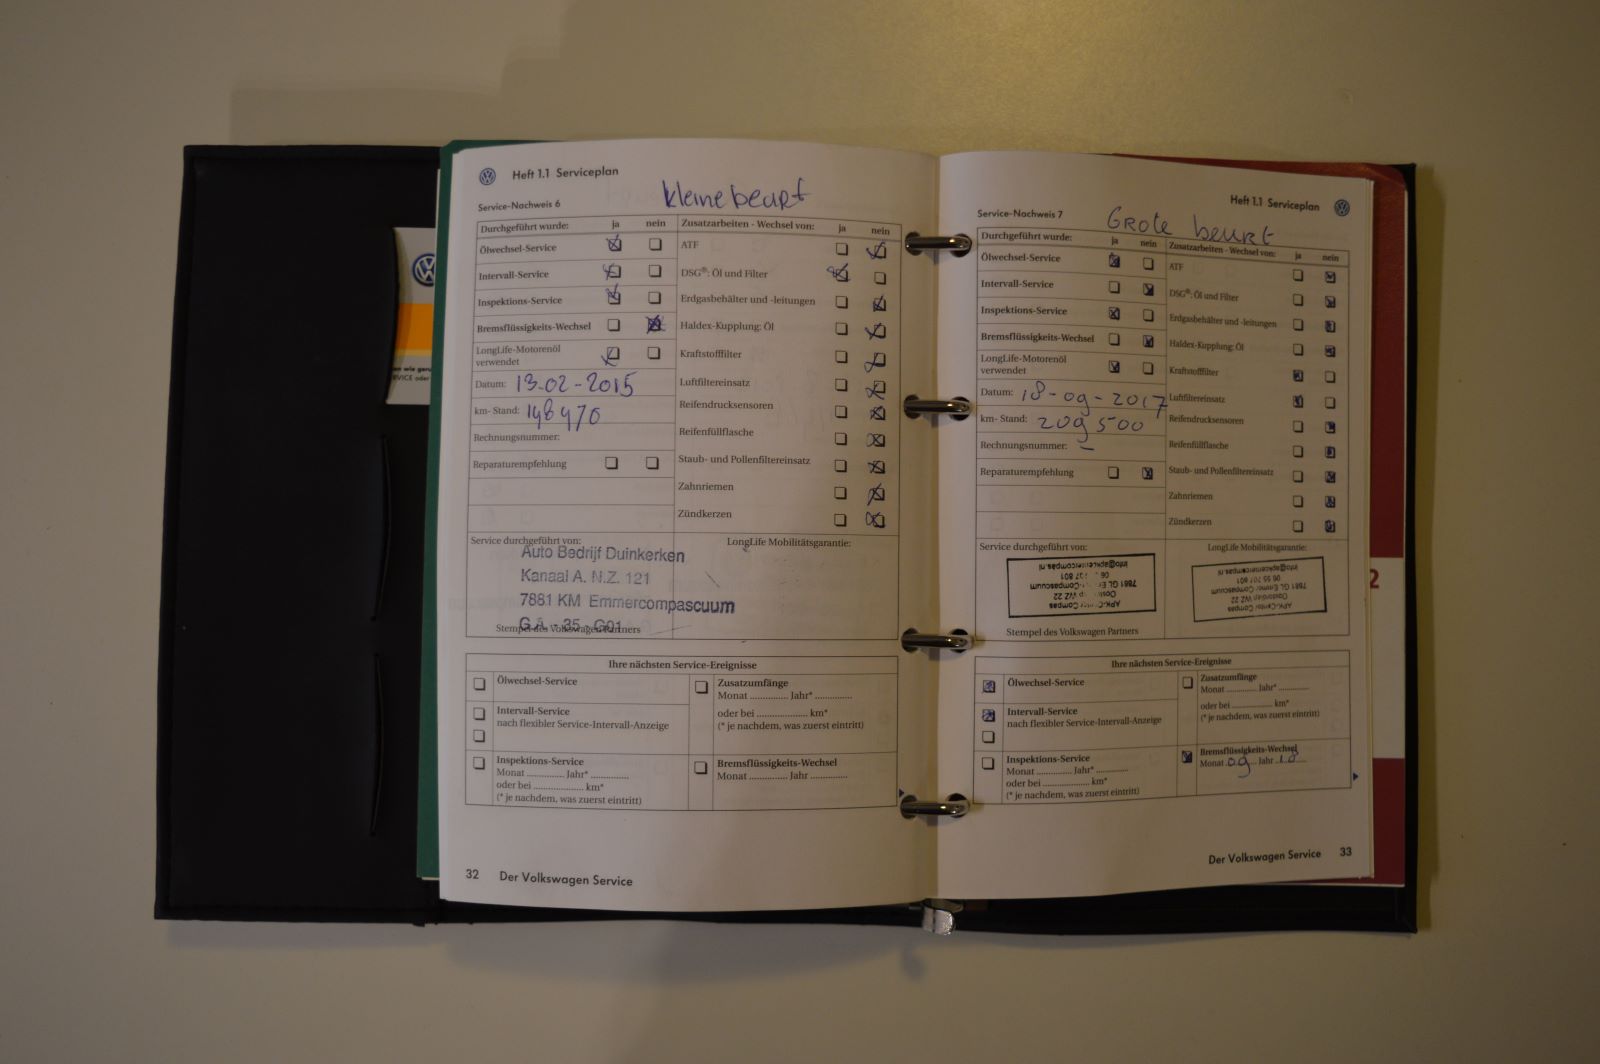 Heft 1.1 Serviceplan
kleine beurt
Service-Nachweis 6
Durchgeführt wurde: ja nein
Ölwechsel-Service
Intervall-Service
Inspektions-Service
Bremsflüssigkeits-Wechsel
LongLife-Motorenöl
verwendet
Datum: 13-02-2015
km- Stand: 148470
Rechnungsnummer:
Reparaturempfehlung
Zusatzarbeiten - Wechsel von: ja nein
ATF
DSG®: Öl und Filter
Erdgasbehälter und -leitungen
Haldex-Kupplung: Öl
Kraftstofffilter
Luftfiltereinsatz
Reifendrucksensoren
Reifenfüllflasche
Staub- und Pollenfiltereinsatz
Zahnriemen
Zündkerzen
Service durchgeführt von:
Auto Bedrijf Duinkerken
Kanaal A. N.Z. 121
7881 KM Emmercompascuum
Stempel des Volkswagen Partners
LongLife Mobilitätsgarantie:
Ihre nächsten Service-Ereignisse
Ölwechsel-Service
Intervall-Service
nach flexibler Service-Intervall-Anzeige
Inspektions-Service
Monat ............. Jahr* .............
oder bei .................... km*
(* je nachdem, was zuerst eintritt)
Zusatzumfänge
Monat ............. Jahr* .............
oder bei .................... km*
(* je nachdem, was zuerst eintritt)
Bremsflüssigkeits-Wechsel
Monat ............. Jahr .............
32 Der Volkswagen Service
Heft 1.1 Serviceplan
Service-Nachweis 7
Grote beurt
Durchgeführt wurde: ja nein
Ölwechsel-Service
Intervall-Service
Inspektions-Service
Bremsflüssigkeits-Wechsel
LongLife-Motorenöl
verwendet
Datum: 18-09-2017
km- Stand: 209500
Rechnungsnummer: –
Reparaturempfehlung
Zusatzarbeiten - Wechsel von: ja nein
ATF
DSG®: Öl und Filter
Erdgasbehälter und -leitungen
Haldex-Kupplung: Öl
Kraftstofffilter
Luftfiltereinsatz
Reifendrucksensoren
Reifenfüllflasche
Staub- und Pollenfiltereinsatz
Zahnriemen
Zündkerzen
Service durchgeführt von:
Stempel des Volkswagen Partners
LongLife Mobilitätsgarantie:
APK-Center Compas
7881 GL Emmer Compascuum
Ihre nächsten Service-Ereignisse
Ölwechsel-Service
Intervall-Service
nach flexibler Service-Intervall-Anzeige
Inspektions-Service
Monat ............. Jahr* .............
oder bei .................... km*
(* je nachdem, was zuerst eintritt)
Zusatzumfänge
Monat ............. Jahr* .............
oder bei .................... km*
(* je nachdem, was zuerst eintritt)
Bremsflüssigkeits-Wechsel
Monat 09 Jahr 18
Der Volkswagen Service 33
2